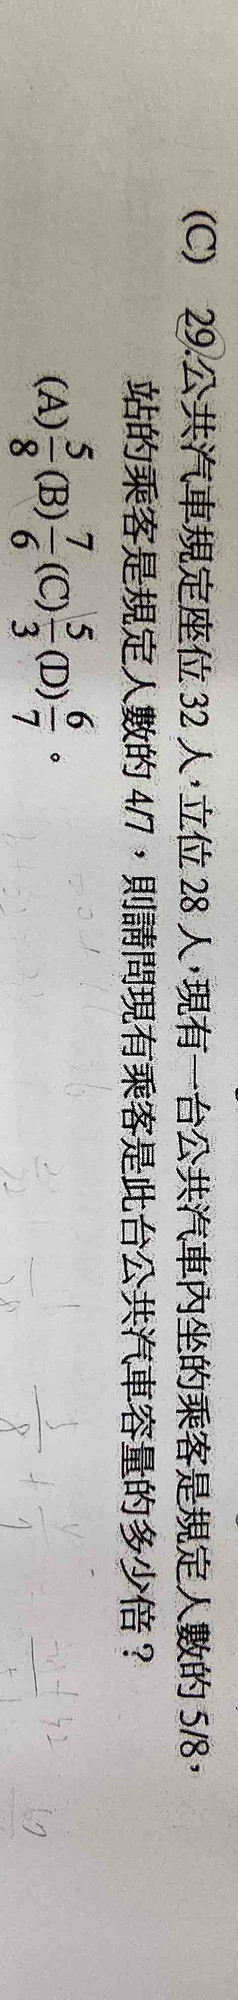 (C) 29.公共汽車規定座位 32 人,立位 28 人,現有一台公共汽車內坐的乘客是規定人數的 5/8,
站的乘客是規定人數的 4/7,則請問現有乘客是此台公共汽車容量的多少倍?
(A)5/8(B)7/6(C)5/3(D)6/7。